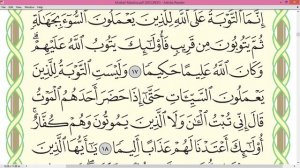 إِنَّمَا ٱلتَّوْبَةُ عَلَى ٱللَّهِ لِلَّذِينَ يَعْمَلُونَ ٱلسُّوٓءَ بِجَهَٰلَةٍ
ثُمَّ يَتُوبُونَ مِن قَرِيبٍ فَأُو۟لَٰٓئِكَ يَتُوبُ ٱللَّهُ عَلَيْهِمْ ۗ
وَكَانَ ٱللَّهُ عَلِيمًا حَكِيمًا ١٧ وَلَيْسَتِ ٱلتَّوْبَةُ لِلَّذِينَ
يَعْمَلُونَ ٱلسَّيِّـَٔاتِ حَتَّىٰٓ إِذَا حَضَرَ أَحَدَهُمُ ٱلْمَوْتُ
قَالَ إِنِّى تُبْتُ ٱلْـَٰٔنَ وَلَا ٱلَّذِينَ يَمُوتُونَ وَهُمْ كُفَّارٌ ۚ
أُو۟لَٰٓئِكَ أَعْتَدْنَا لَهُمْ عَذَابًا أَلِيمًا ١٨ يَٰٓأَيُّهَا ٱلَّذِينَ